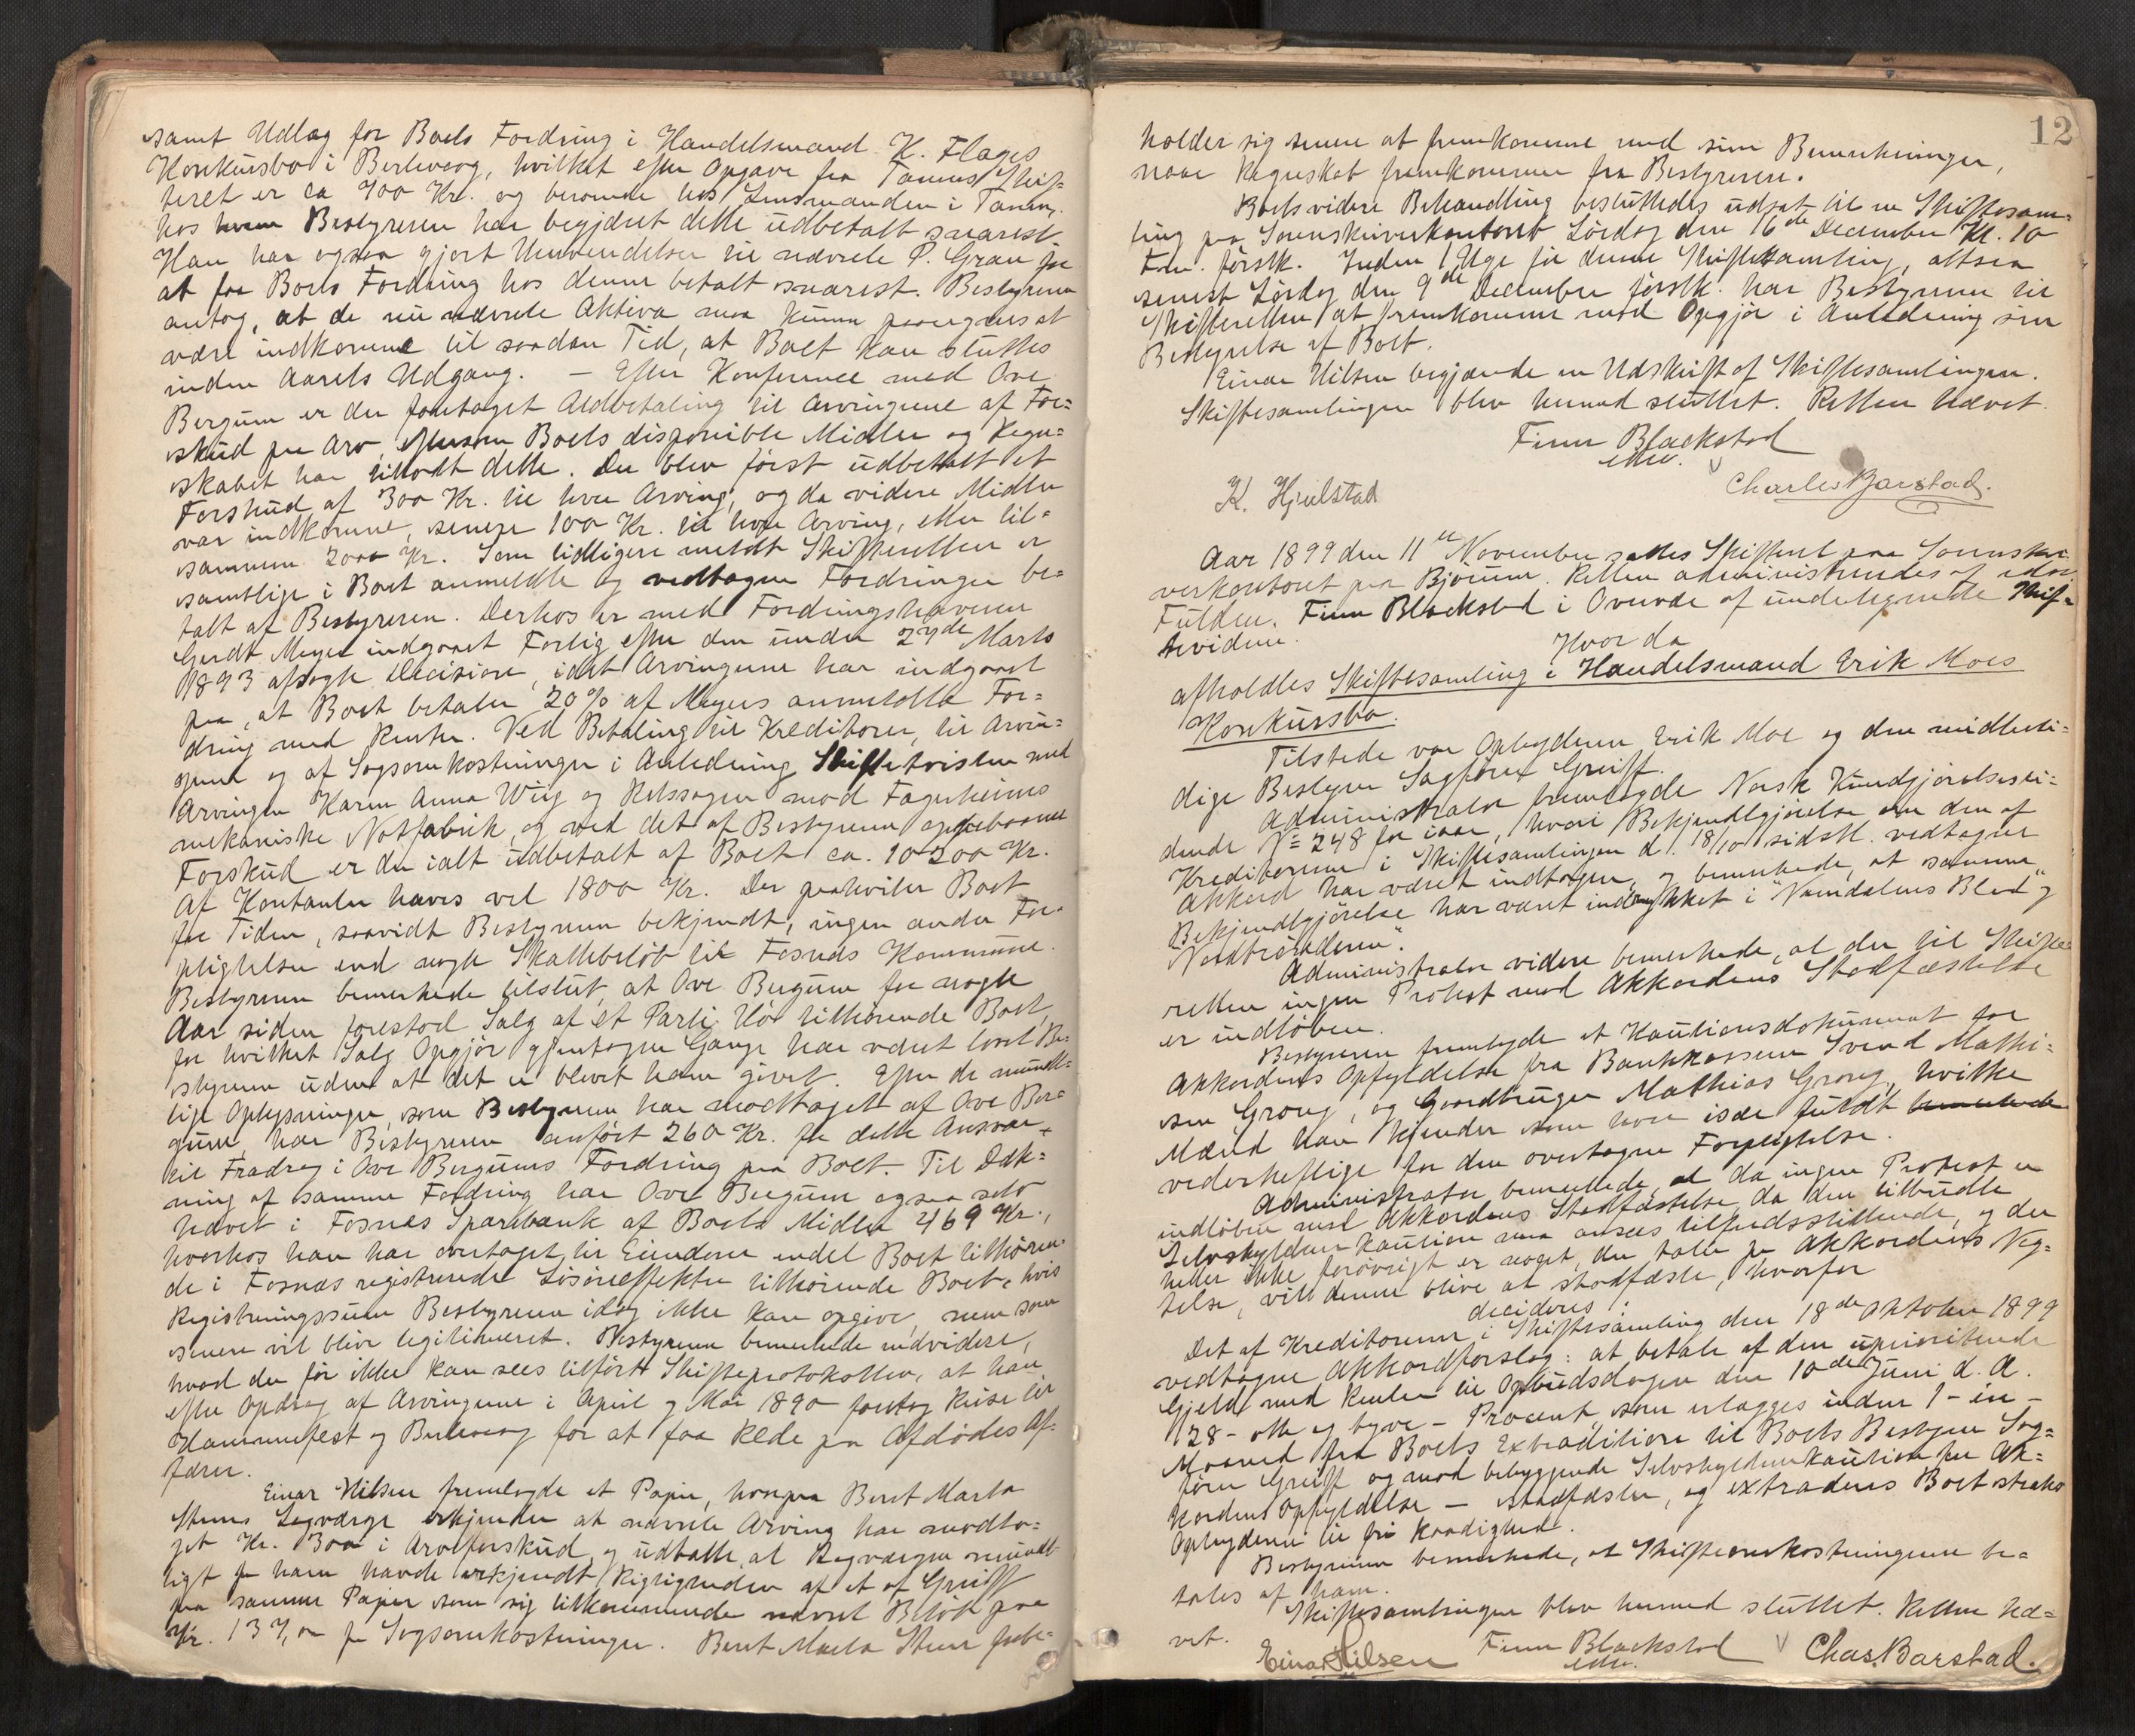 samt Udlæg for Boets Fordring i Handelsmand K. Flages
Konkursbo i Berlevaag, hvilket efter Opgave fra Tanens Skif-
teret er ca 700 Kr. og beroende hos Lensmanden i Tanen,
hos hvem Bestyreren har begjæret dette udbetalt snarest.
Han har ogsaa gjort Henvendelser til nævnte P. Gran for
at faa Boets Fordring hos denne betalt snarest. Bestyreren
antog, at de nu nævnte Aktiva maa kunne paaregnes at
være indkomne til saadan Tid, at Boet kan sluttes
inden Aarets Udgang. – Efter Konference med Ove
Bergum er der foretaget Udbetaling til Arvingerne af For=
skud paa Arv, eftersom Boets disponible Midler og Regn=
skabet har tilladt dette. Der blev först udbetalt et
Forskud af 300 Kr. til hver Arving, og da videre Midler
var indkomne, senere 100 Kr. til hver Arving, eller til=
sammen 2000 Kr. Som tidligere meldt Skifteretten er
samtlige i Boet anmeldte og vedtagne Fordringer be=
talt af Bestyreren. Derhos er med Fordringshaveren
Gerdt Meyer indgaaet Forlig efter den under 27de Marts
1893 afsagte Decision, idet Arvingerne har indgaaet
paa, at Boet betaler 20% af Meyers anmeldte For=
dring med Renter. Ved Betaling til Kreditorer, til Arvin=
gerne og af Sagsomkostninger i Anledning Skiftetvisten med
Arvingen Karen Anna Wiig og Retssagen mod Fagerheims
mekaniske Notfabrik, og ved det af Bestyreren oppebaarne
Forskud er der ialt udbetalt af Boet ca. 10200 Kr.
Af Kontanter haves vel 1800 Kr. Der paahviler Boet
for Tiden, saavidt Bestyreren bekjendt, ingen anden For=
pligtelse end nogle Skattebeløb til Fosnes Kommune.
Bestyreren bemerkede tilslut, at Ove Bergum for nogle
Aar siden forestod Salg af et Parti Hö tilhörende Boet,
for hvilket Salg Opgjör gjentagne Gange har været lovet Be=
styreren uden at det er blevet ham givet. Efter de mundt=
lige Oplysninger, som Bestyreren har modtaget af Ove Ber=
gum, har Bestyreren anført 260 Kr. for dette Ansvar
til Fradrag i Ove Bergums Fordring paa Boet. Til Dæk=
ning af samme Fordring har Ove Bergum ogsaa selv
hævet i Fosnes Sparebank af Boets Midler 469 Kr.,
hvorhos han har overtaget til Eiendom endel Boet tilhören=
de i Fosnæs registrerede Lösöreffekter tilhörende Boet, hvis
Registreringssum Bestyreren idag ikke kan opgive, men som
senere vil blive legitimeret. Bestyreren bemerkede endvidere,
hvad der för ikke kan sees tilfört Skifteprotokollen, at han
efter Opdrag af Arvingerne i April og Mai 1890 foretog Reise til
Hammerfest og Berlevaag for at faa Rede paa Afdødes Af=
færer.
Einar Nilsen fremlagde et Papir, hvorpaa Beret Marta
Stens Lagværge erkjender at nævnte Arving har modta=
get Kr. 300 i Arveforskud, og udtalte, at Lagværgen mundt
ligt for ham havde erkjendt Rigtigheden af et af Greiff
paa samme Papir som sig tilkommende nævnt Beløb paa
Kr. 137,00 for Sagsomkostninger. Beret Marta Sten forbe-
12
holder sig senere at fremkomme med sine Bemerkninger,
naar Regnskab fremkommer fra Bestyreren.
Boets videre Behandling besluttedes udsat til en Skiftesam=
ling paa Sorenskriverkontoret Lördag den 16de December Kl. 10
Fm. förstk. Inden 1 Uge för denne Skiftesamling, altsaa
senest Lördag den 9de December förstk. har Bestyreren til
Skifteretten at fremkomme med Opgjör i Anledning sin
Bestyrelse af Boet.
Einar Nilsen begjærede en Udskrift af Skiftesamlingen.
Skiftesamlingen blev hermed sluttet. Retten hævet.
Finn Blackstad
edsv.
K. Hjulstad
Charles Barstad.
Aar 1899 den 11te November sattes Skifteret paa Sorenskri=
verkontoret paa Bjørum. Retten administreredes af edsv.
Fuldm. Finn Blackstad i Overvær af undertegnede Skif=
tevidner.
Hvor da
afholdtes Skiftesamling i Handelsmand Erik Moes
Konkursbo.
Tilstede var Opbyderen Erik Moe og den midlerti=
dige Bestyrer Sagförer Greiff.
Administrator fremlagde Norsk Kundgjörelsesti=
dende No 248 for iaar, hvori Bekjendtgjörelse om den af
Kreditorerne i Skiftesamlingen d. 18/10 sidstl. vedtagne
Akkord har været indtagen, og bemerkede, at samme
Bekjendtgjörelse har været indrykket i "Namdalens Blad" og
"Nordtrönderen".
Administrator videre bemerkede, at der til Skifte
retten ingen Protest mod Akkordens Stadfæstelse
er indlöben.
Bestyreren fremlagde et Kautionsdokument for
Akkordens Opfyldelse fra Bankkasserer Svend Mathi=
sen Grong, og Gaardbruger Mathias Grong, hvilke
Mænd han kjender som hver især fuldt
vederheftige for den overtagne Forpligtelse.
Administrator bemerkede, at da ingen Protest er
indlöben mod Akkordens Stadfæstelse, da den tilbudte
Selvskyldnerkaution maa ansees tilfredsstillende, og der
heller ikke forövrigt er noget, der taler for Akkordens Neg=
telse, vil denne blive at stadfæste, hvorfor
decideres:
Det af Kreditorerne i Skiftesamling den 18de Oktober 1899
vedtagne Akkordforslag: at betale af den uprioriterede
Gjeld med Renter til Opbudsdagen den 10de Juni d. A.
28 - otte og tyve - Procent, som erlægges inden 1 - en -
Maaned fra Boets Extradition til Boets Bestyrer Sag=
förer Greiff og mod betryggende Selvskyldnerkaution for Ak=
kordens Opfyldelse – stadfæstes, og extraderes Boet straks
Opbyderen til fri Raadighed.
Bestyreren bemerkede, at Skifteomkostningerne be=
tales af ham.
Skiftesamlingen blev hermed sluttet. Retten hæ=
vet.
Einar Nilsen
Finn Blackstad
edsv.
Chas. Barstad.